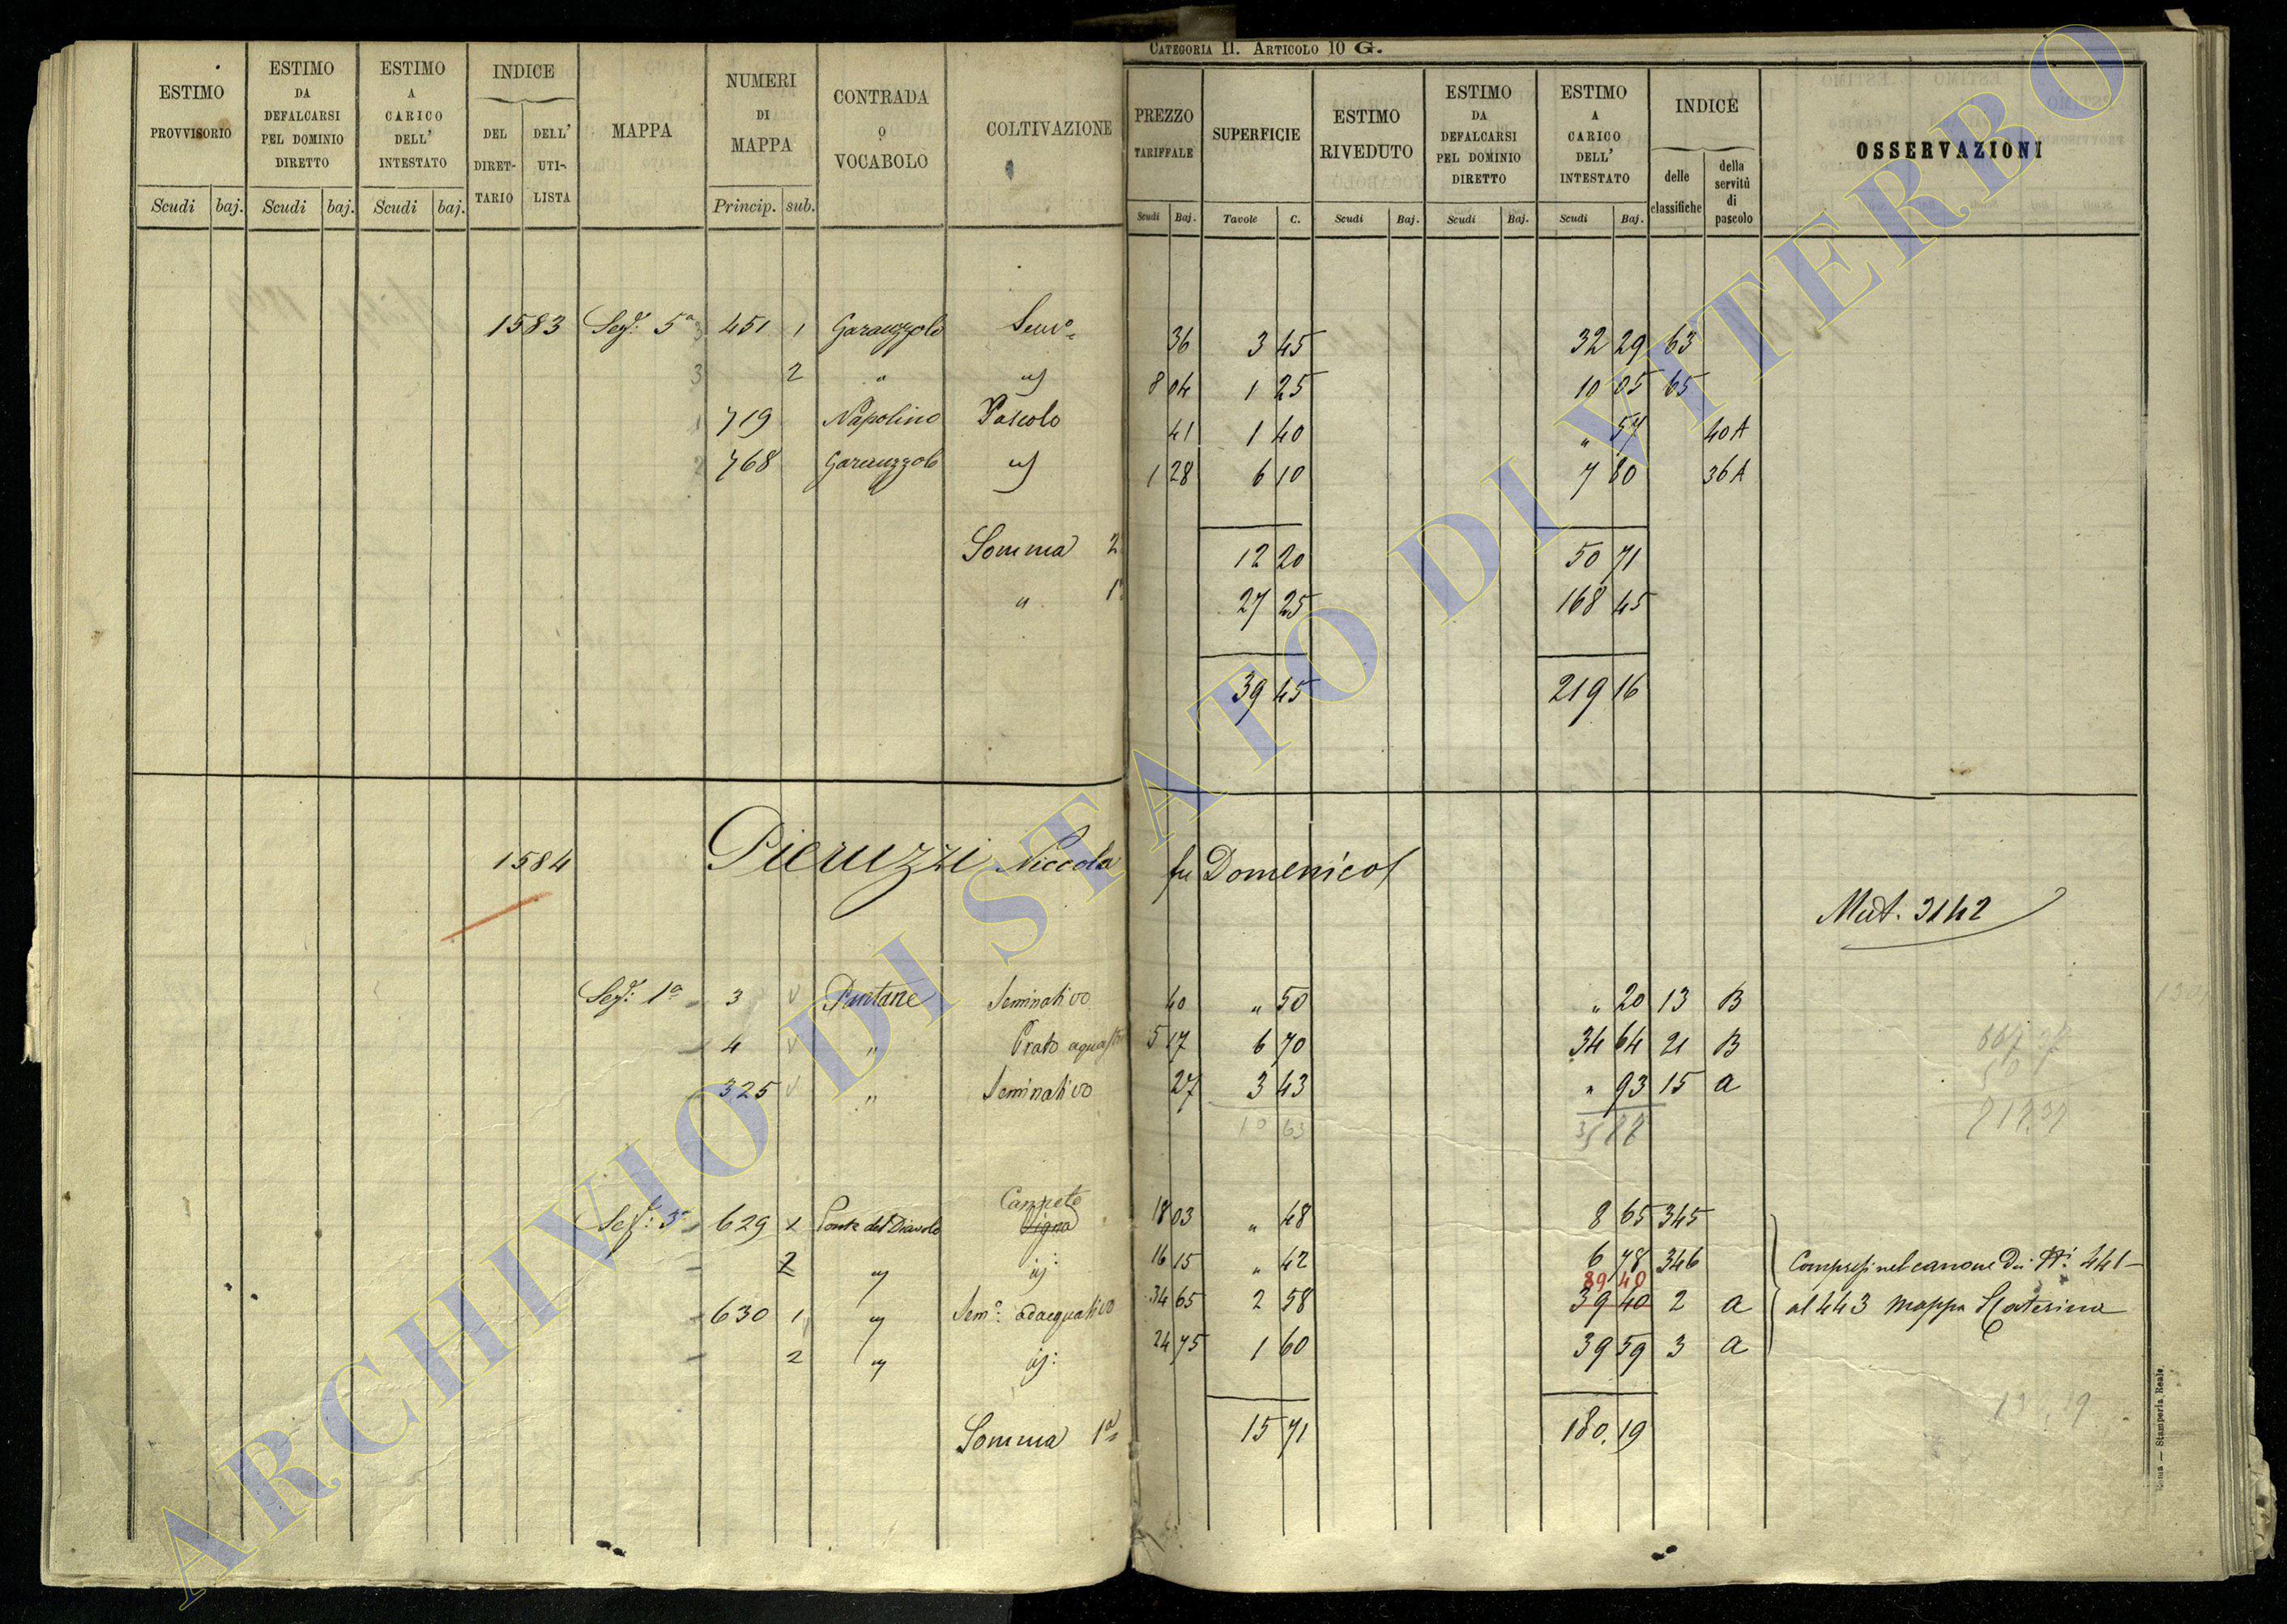 CATEGORIA II. ARTICOLO 10 G.
ESTIMO PROVVISORIO Scudi baj.
ESTIMO DA DEFALCARSI PEL DOMINIO DIRETTO Scudi baj.
ESTIMO A CARICO DELL' INTESTATO Scudi baj.
INDICE DEL DIRET-TARIO DELL' UTI-LISTA
MAPPA
NUMERI DI MAPPA Princip. sub.
CONTRADA o VOCABOLO
COLTIVAZIONE
PREZZO TARIFFALE Scudi Baj.
SUPERFICIE Tavole C.
ESTIMO RIVEDUTO Scudi Baj.
ESTIMO DA DEFALCARSI PEL DOMINIO DIRETTO Scudi Baj.
ESTIMO A CARICO DELL' INTESTATO Scudi Baj.
INDICE delle classifiche della servitù di pascolo
OSSERVAZIONI
1583 Sez: 5a 3 451 1 Garauzzolo Semo 36 3 45 32 29 63
3 2 " id 8 04 1 25 10 05 65
1 719 Napolino Pascolo 41 1 40 " 57 40 A
2 768 Garauzzolo id 1 28 6 10 7 80 36 A
Somma 2 12 20 50 71
" 1 27 25 168 45
39 45 219 16
1584 Pieruzzi Niccola fu Domenico
Mut. 3142
Sez: 1a 3 Pantane Seminativo 40 " 50 " 20 13 B
4 " Prato 5 17 6 70 34 64 21 B
325 " Seminativo 27 3 43 " 93 15 a
10 63
Canneto
Sez: 3a 629 1 Ponte del Diavolo Vigna 18 03 " 48 8 65 345
2 " id: 16 15 " 42 6 78 346
89 40
630 1 " Semo: adacquativo 34 65 2 58 39 40 2 a
2 " id: 24 75 1 60 39 59 3 a
Compresi nel canone dei Ni. 441
al 443 mappa S Caterina
Somma 1a 15 71 180.19
Roma — Stamperia Reale.
ARCHIVIO DI STATO DI VITERBO